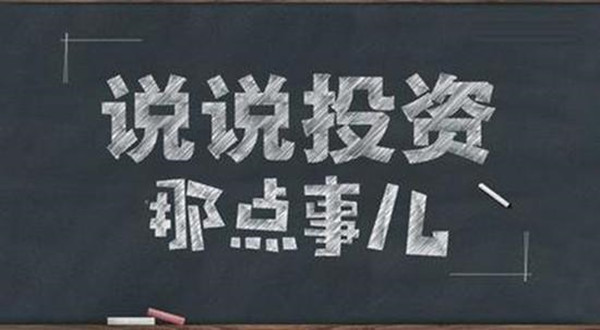 说说投资
那点事儿